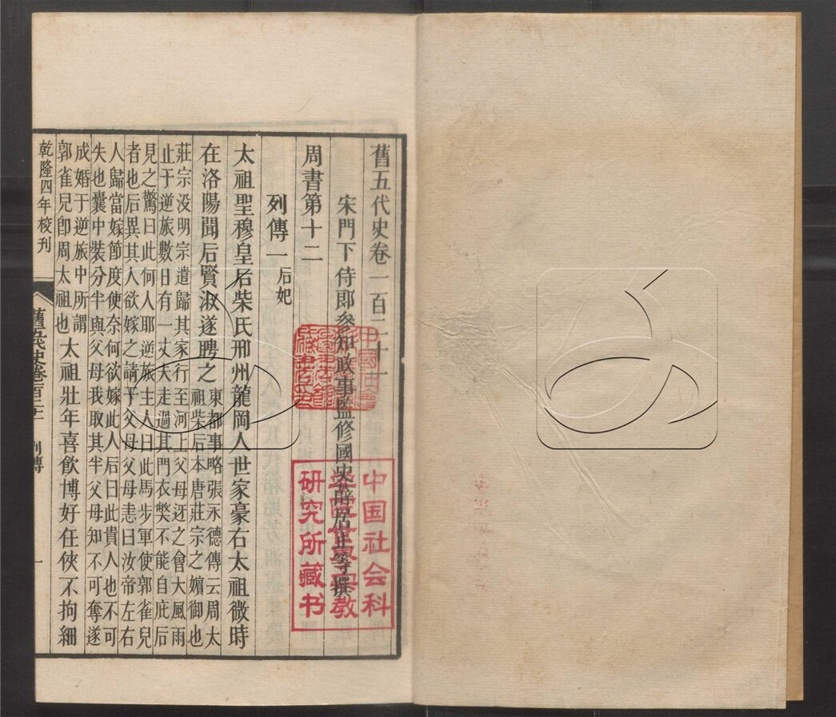 舊五代史卷一百二十一
宋門下侍郎參知政事監修國史薛居正等撰
周書第十二
列傳一 后妃
太祖聖穆皇后柴氏邢州龍岡人世家豪右太祖微時
在洛陽聞后賢淑遂聘之
東都事略張永德傳云周太
祖柴后本唐莊宗之嬪御也
莊宗没明宗遣歸其家行至河上父母迓之會大風雨
止于逆旅數日有一丈夫走過其門衣獘不能自庇后
見之驚曰此何人耶逆旅主人曰此馬步軍使郭雀兒
者也后異其人欲嫁之請于父母父母恚曰汝帝左右
人歸當嫁節度使奈何欲嫁此人后曰此貴人也不可
失也囊中裝分半與父母我取其半父母知不可奪遂
成婚于逆旅中所謂
郭雀兒即周太祖也
太祖壯年喜飲博好任俠不拘細
乾隆四年校刊
舊五代史卷一百二十一 列傳 一
中国社会科
学院世界宗教
研究所藏书